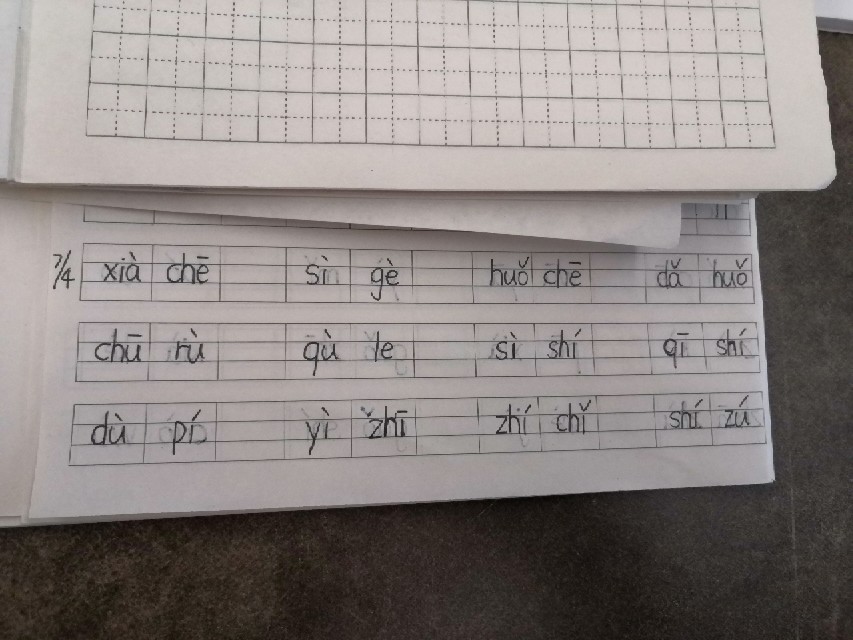 7/4 xià chē sì gè huǒ chē dǎ huǒ
chū rù qù le sì shí qī shí
dù pí yì zhī zhí chǐ shí zú